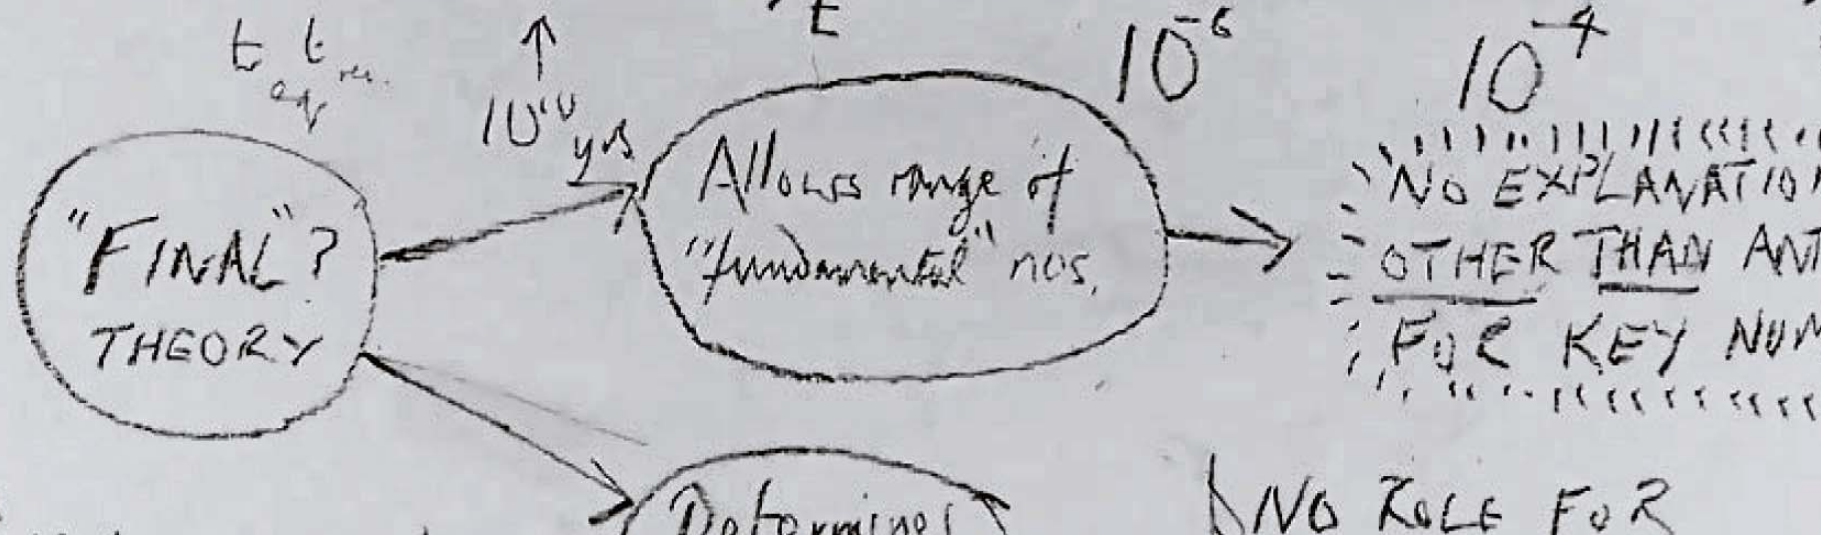 E
10⁻⁶
10⁻⁴
t_eq t_rec.
10¹⁰ yrs
"FINAL"?
THEORY
Allows range of
"fundamental" nos.
NO EXPLANATION
OTHER THAN ANT
FOR KEY NUM
Determines
NO ROLE FOR